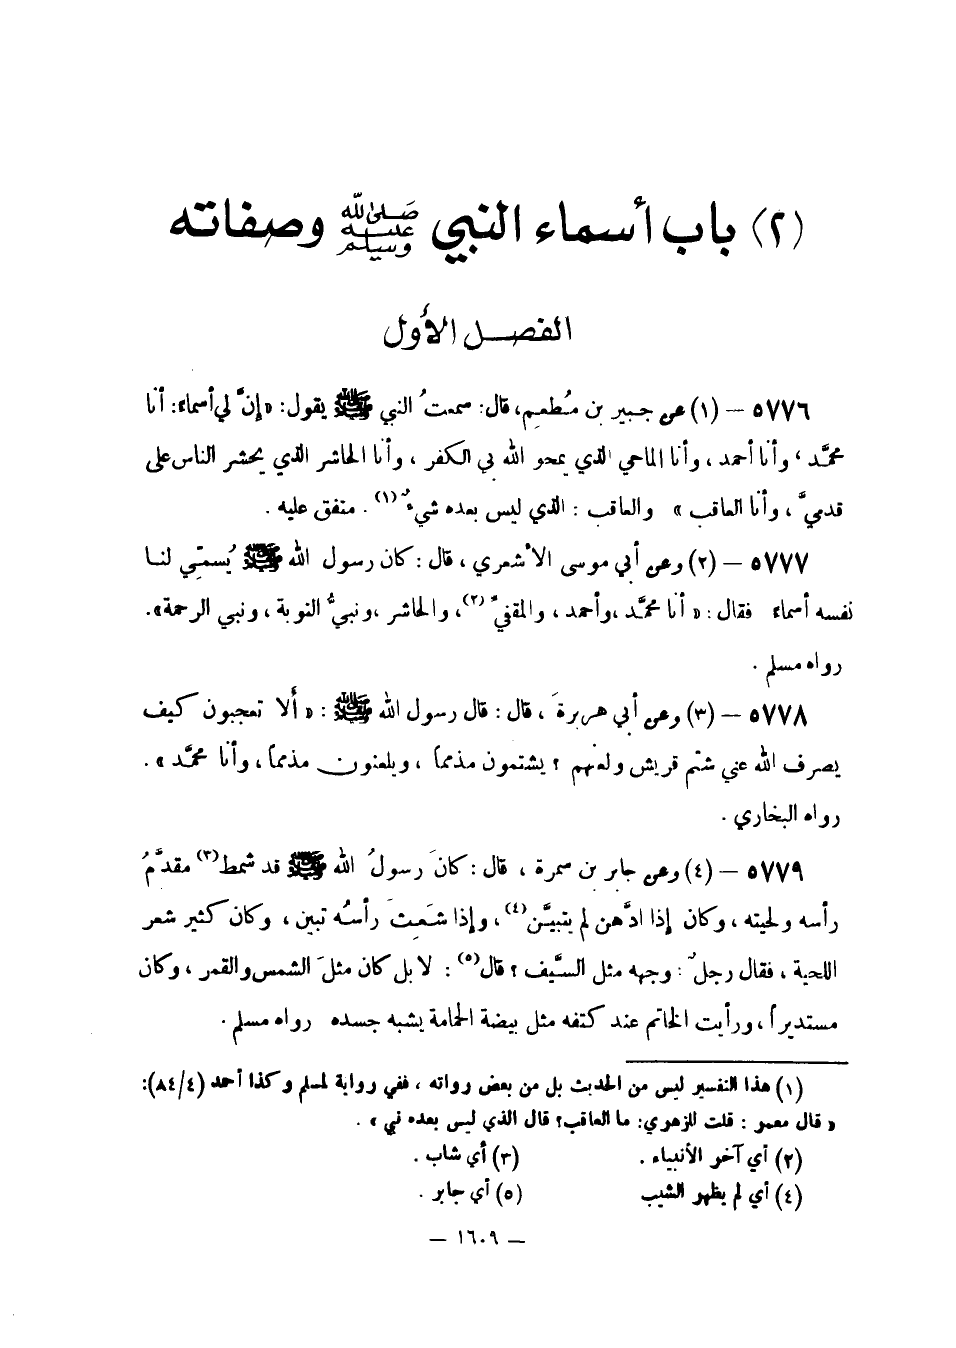 (٢) باب أسماء النبي ﷺ وصفاته
الفصل الأول
٥٧٧٦ – (١) عن جبير بن مُطعِم، قال: سمعتُ النبي ﷺ يقول: « إنَّ لي أسماءً: أنا
محمَّد ، وأنا أحمد ، وأنا الماحي الذي يمحو الله بي الكفر ، وأنا الحاشر الذي يحشر الناس على
قدميَّ ، وأنا العاقب » والعاقب : الذي ليس بعده شيءٌ(١) . متفق عليه .
٥٧٧٧ – (٢) وعن أبي موسى الأشعري ، قال : كان رسول الله ﷺ يُسمِّي لنا
نفسه أسماءً فقال : « أنا محمَّد ،وأحمد ، والمقفيّ(٢)، والحاشر ،ونبيُّ التوبة ، ونبي الرحمة».
رواه مسلم .
٥٧٧٨ – (٣) وعن أبي هريرةَ ، قال : قال رسول الله ﷺ : « أَلا تعجبون كيف
يصرف الله عني شتم قريش ولعنهم ؟ يشتمون مذمماً ، ويلعنون مذمماً ، وأنا محمَّد » .
رواه البخاري .
٥٧٧٩ – (٤) وعن جابر بن سمرة ، قال : كانَ رسولُ الله ﷺ قد شمط(٣) مقدَّمُ
رأسه ولحيته ، وكان إذا ادَّهن لم يتبيَّن(٤) ، وإذا شَعِثَ رأسُه تبين ، وكان كثير شعر
اللحية ، فقال رجلٌ : وجهه مثل السَّيف ؟ قال(٥) : لا بل كان مثلَ الشمس والقمر ، وكان
مستديراً ، ورأيت الخاتم عند كتفه مثل بيضة الحمامة يشبه جسده رواه مسلم .
(١) هذا التفسير ليس من الحديث بل من بعض رواته ، ففي رواية لمسلم وكذا أحمد (٨٤/٤):
« قال معمر : قلت للزهري: ما العاقب؟ قال الذي ليس بعده نبي » .
(٢) أي آخر الأنبياء . (٣) أي شاب .
(٤) أي لم يظهر الشيب (٥) أي جابر .
– ١٦٠٩ –